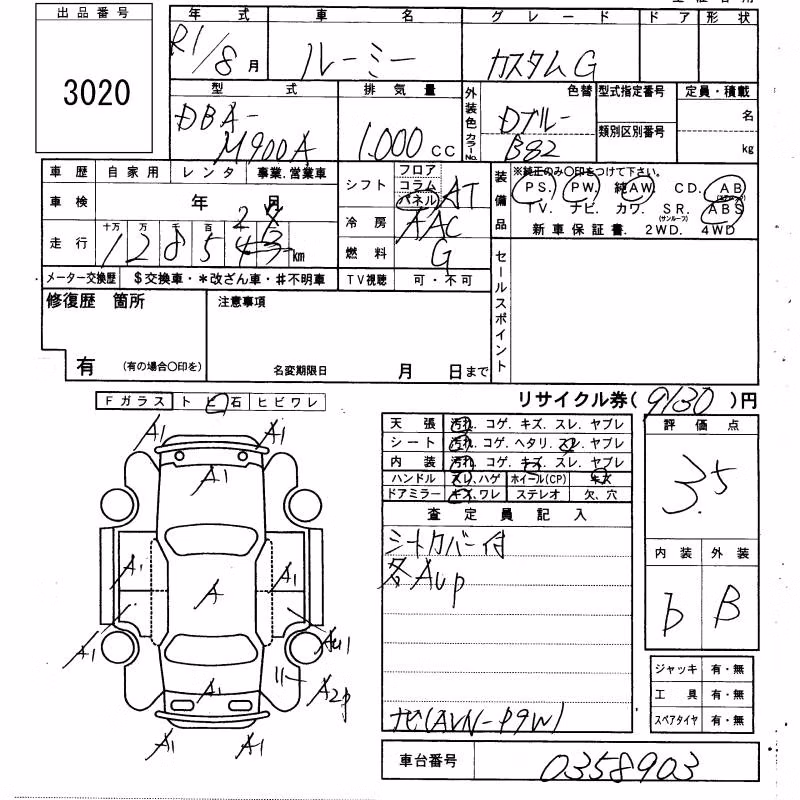 出品番号 年式 車名 グレード ドア 形状
3020 R1/8月 ルーミー カスタムG
型式 排気量 外装色 カラーNo. 色替 型式指定番号 定員・積載
DBA- 1.000cc Dブルー 名
M900A B82 類別区別番号 kg
車歴 自家用 レンタ 事業.営業車 シフト フロア 装備品 ※純正のみ〇印をつけて下さい。
コラム AT PS. PW. 純AW CD. AB
車検 年 月 パネル (エアB)
冷房 AAC TV. ナビ. カワ. SR. ABS
(サンルーフ)
走行 十万 万 千 百 新車保証書. 2WD. 4WD
1 2 8 5 km 燃料 G
メーター交換歴 $交換車・*改ざん車・#不明車 TV視聴 可・不可 セールスポイント
修復歴 箇所 注意事項
有 (有の場合〇印を) 名変期限日 月 日まで
Fガラス トビ石 ヒビワレ リサイクル券( 9130 )円
天張 汚れ. コゲ. キズ. スレ. ヤブレ 評価点
シート 汚れ. コゲ. ヘタリ. スレ. ヤブレ
内装 汚れ. コゲ. キズ. スレ. ヤブレ 3.5
ハンドル スレ.ハゲ ホイール(CP) キズ
ドアミラー キズ.ワレ ステレオ 欠、穴
査定員記入
シートカバー付 内装 外装
各AUP b B
ナビ(AVN-P9W)
ジャッキ 有・無
工具 有・無
スペアタイヤ 有・無
車台番号 0358903
A1 A1
A1
A1 A A1
A1 AU1
A1 A2P
A1 A1